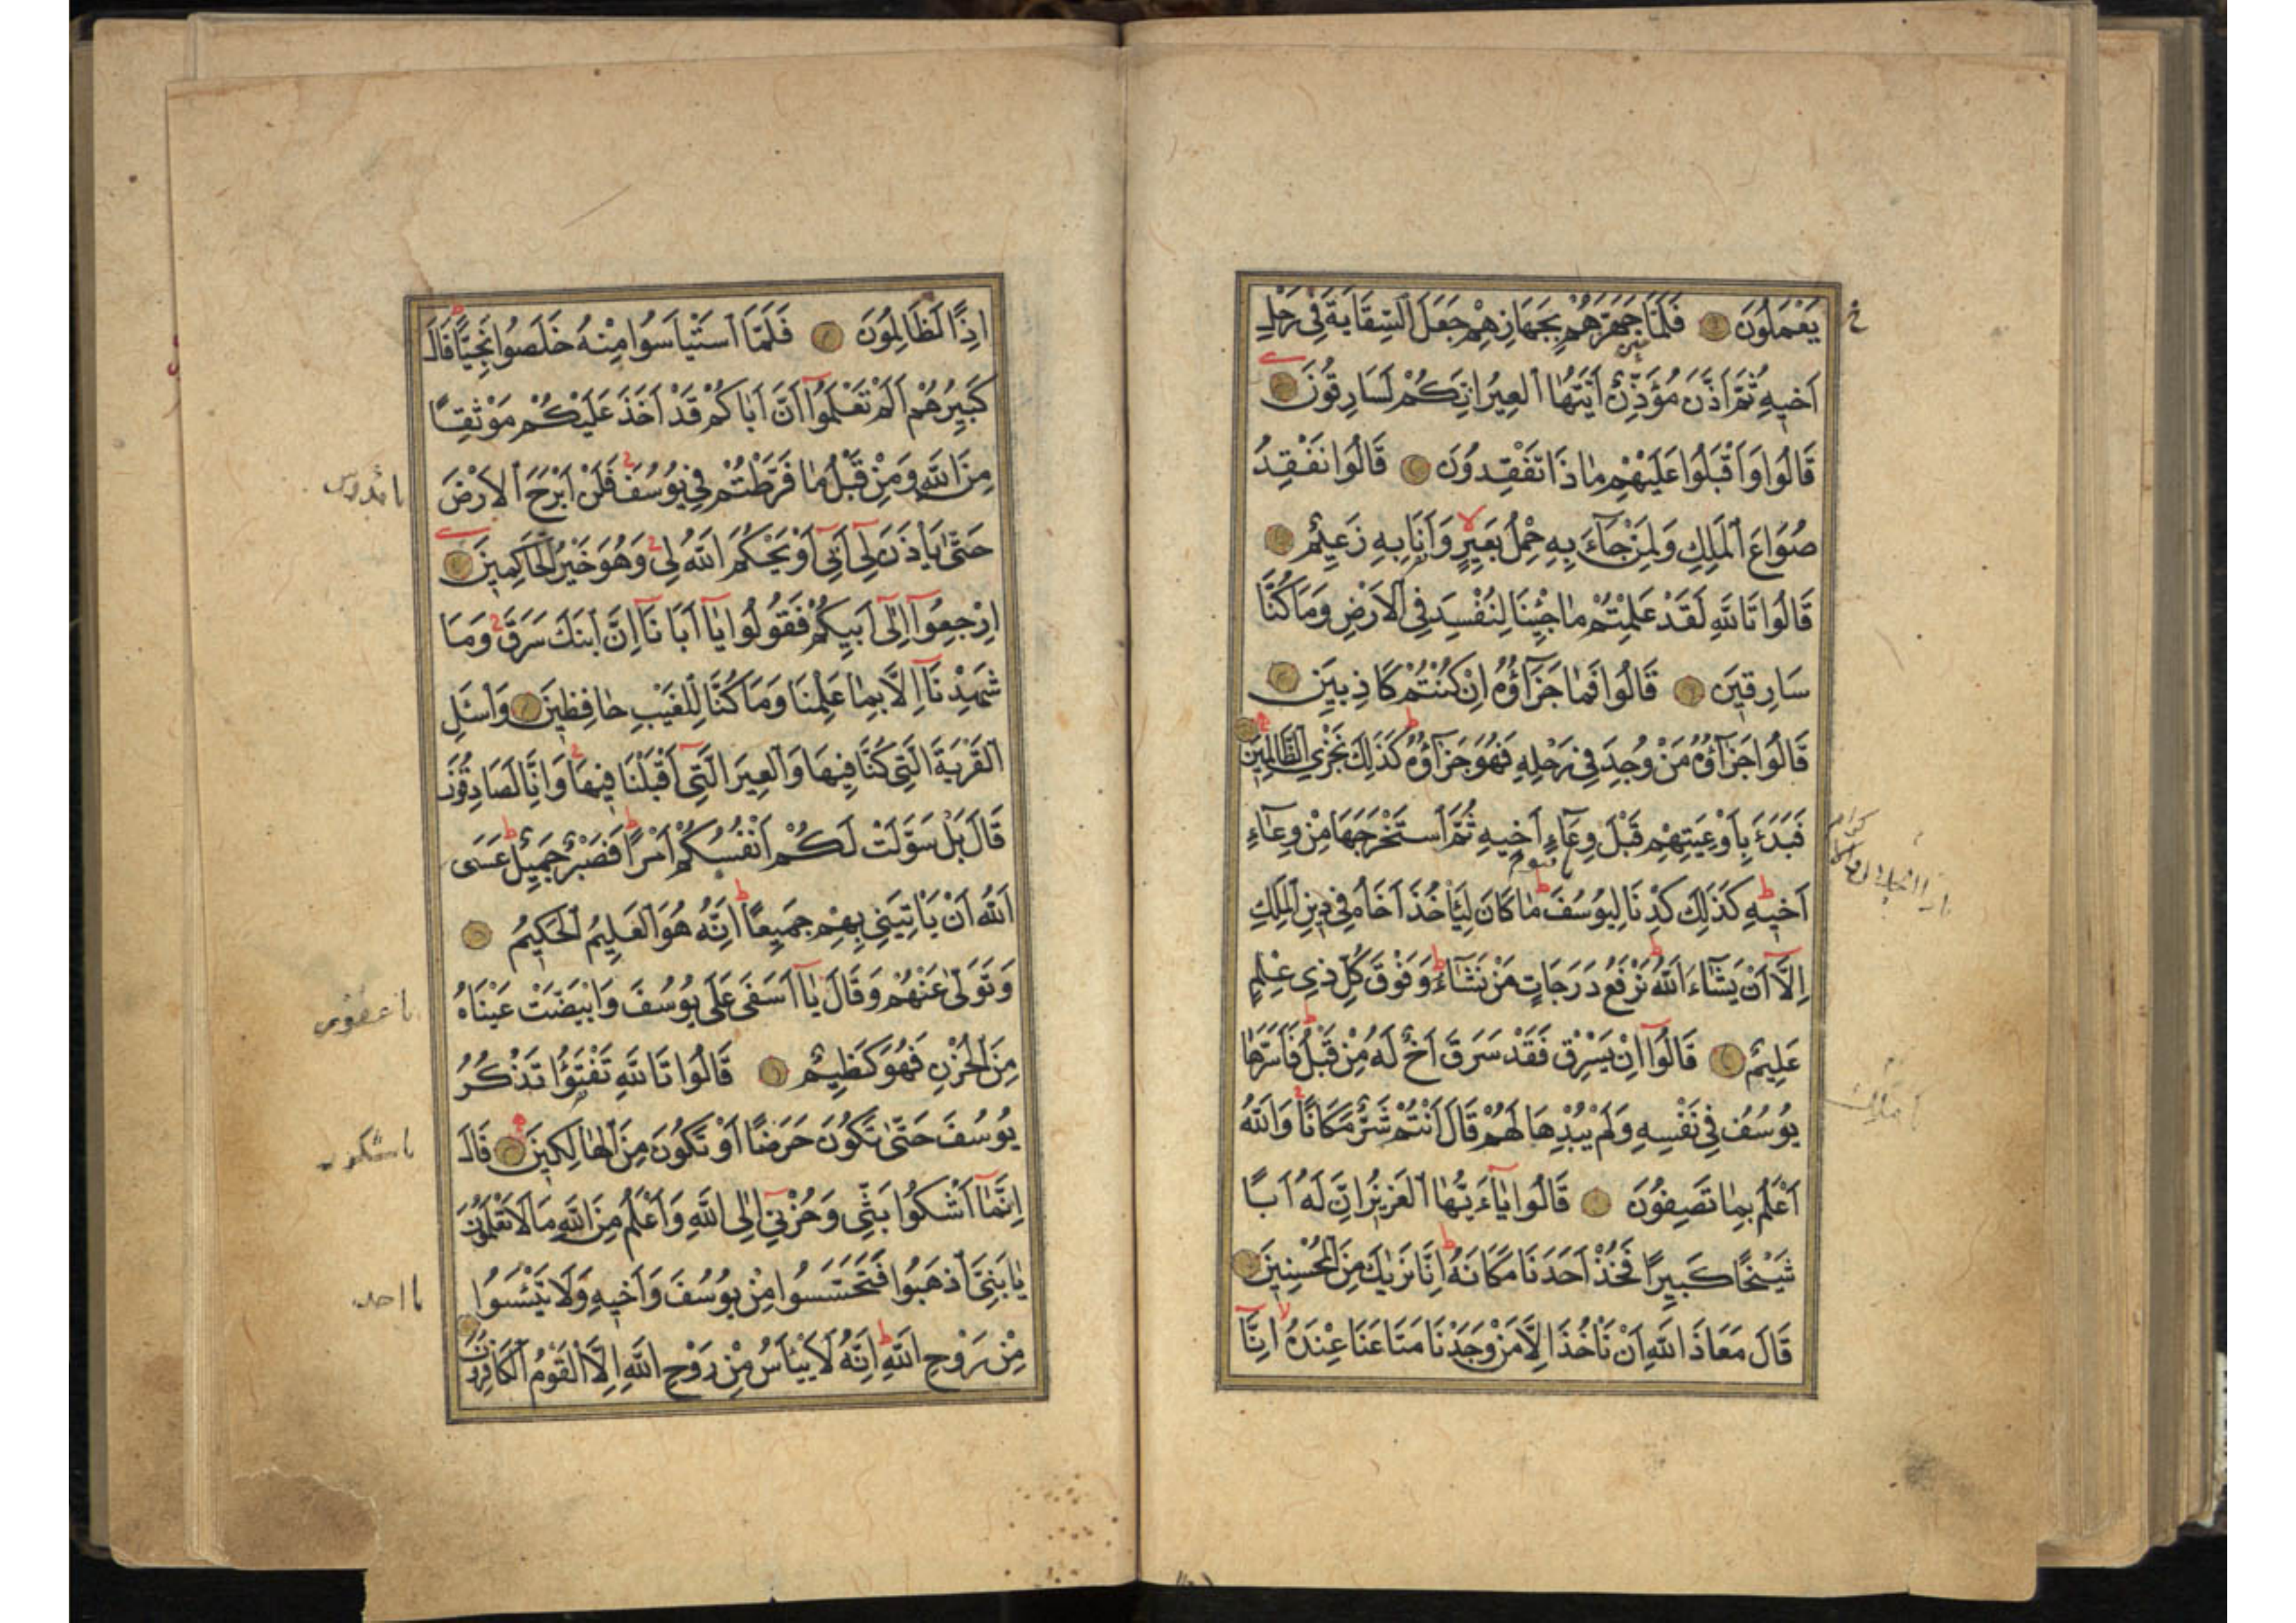 يَعْمَلُونَ فَلَمَّا جَهَّزَهُمْ بِجَهَازِهِمْ جَعَلَ السِّقَايَةَ فِي رَحْلِ
اَخِيهِ ثُمَّ اَذَّنَ مُؤَذِّنٌ اَيَّتُهَا الْعِيرُ اِنَّكُمْ لَسَارِقُونَ
قَالُوا وَاَقْبَلُوا عَلَيْهِمْ مَاذَا تَفْقِدُونَ قَالُوا نَفْقِدُ
صُوَاعَ الْمَلِكِ وَلِمَنْ جَآءَ بِهِ حِمْلُ بَعِيرٍ وَاَنَا بِهِ زَعِيمٌ
قَالُوا تَاللّٰهِ لَقَدْ عَلِمْتُمْ مَاجِئْنَا لِنُفْسِدَ فِي الْاَرْضِ وَمَا كُنَّا
سَارِقِينَ قَالُوا فَمَا جَزَآؤُهُ اِنْ كُنْتُمْ كَاذِبِينَ
قَالُوا جَزَآؤُهُ مَنْ وُجِدَ فِي رَحْلِهِ فَهُوَ جَزَآؤُهُ كَذٰلِكَ نَجْزِي الظَّالِمِينَ
فَبَدَءَ بِاَوْعِيَتِهِمْ قَبْلَ وِعَآءِ اَخِيهِ ثُمَّ اسْتَخْرَجَهَا مِنْ وِعَآءِ
اَخِيهِ كَذٰلِكَ كِدْنَا لِيُوسُفَ مَا كَانَ لِيَاْخُذَ اَخَاهُ فِي دِينِ الْمَلِكِ
اِلَّآ اَنْ يَشَآءَ اللّٰهُ نَرْفَعُ دَرَجَاتٍ مَنْ نَشَآءُ وَفَوْقَ كُلِّ ذِي عِلْمٍ
عَلِيمٌ قَالُوٓا اِنْ يَسْرِقْ فَقَدْ سَرَقَ اَخٌ لَهُ مِنْ قَبْلُ فَاَسَرَّهَا
يُوسُفُ فِي نَفْسِهِ وَلَمْ يُبْدِهَا لَهُمْ قَالَ اَنْتُمْ شَرٌّ مَكَانًا وَاللّٰهُ
اَعْلَمُ بِمَا تَصِفُونَ قَالُوا يَآءَيُّهَا الْعَزِيزُ اِنَّ لَهُ اَبًا
شَيْخًا كَبِيرًا فَخُذْ اَحَدَنَا مَكَانَهُ اِنَّا نَرٰيكَ مِنَ الْمُحْسِنِينَ
قَالَ مَعَاذَ اللّٰهِ اَنْ نَاْخُذَ اِلَّا مَنْ وَجَدْنَا مَتَاعَنَا عِنْدَهُ اِنَّآ
اِذًا لَظَالِمُونَ فَلَمَّا اسْتَيْاَسُوا مِنْهُ خَلَصُوا نَجِيًّا قَالَ
كَبِيرُهُمْ اَلَمْ تَعْلَمُوٓا اَنَّ اَبَاكُمْ قَدْ اَخَذَ عَلَيْكُمْ مَوْثِقًا
مِنَ اللّٰهِ وَمِنْ قَبْلُ مَا فَرَّطْتُمْ فِي يُوسُفَ فَلَنْ اَبْرَحَ الْاَرْضَ
حَتّٰى يَاْذَنَ لِي اَبِي اَوْ يَحْكُمَ اللّٰهُ لِي وَهُوَ خَيْرُ الْحَاكِمِينَ
اِرْجِعُوٓا اِلٰٓى اَبِيكُمْ فَقُولُوا يَآ اَبَانَآ اِنَّ ابْنَكَ سَرَقَ وَمَا
شَهِدْنَآ اِلَّا بِمَا عَلِمْنَا وَمَا كُنَّا لِلْغَيْبِ حَافِظِينَ وَاسْئَلِ
الْقَرْيَةَ الَّتِي كُنَّا فِيهَا وَالْعِيرَ الَّتِي اَقْبَلْنَا فِيهَا وَاِنَّا لَصَادِقُونَ
قَالَ بَلْ سَوَّلَتْ لَكُمْ اَنْفُسُكُمْ اَمْرًا فَصَبْرٌ جَمِيلٌ عَسَى
اللّٰهُ اَنْ يَاْتِيَنِي بِهِمْ جَمِيعًا اِنَّهُ هُوَ الْعَلِيمُ الْحَكِيمُ
وَتَوَلّٰى عَنْهُمْ وَقَالَ يَآ اَسَفَى عَلَى يُوسُفَ وَابْيَضَّتْ عَيْنَاهُ
مِنَ الْحُزْنِ فَهُوَ كَظِيمٌ قَالُوا تَاللّٰهِ تَفْتَؤُا تَذْكُرُ
يُوسُفَ حَتّٰى تَكُونَ حَرَضًا اَوْ تَكُونَ مِنَ الْهَالِكِينَ قَالَ
اِنَّمَآ اَشْكُوا بَثِّي وَحُزْنِي اِلَى اللّٰهِ وَاَعْلَمُ مِنَ اللّٰهِ مَا لَا تَعْلَمُونَ
يَا بَنِيَّ اذْهَبُوا فَتَحَسَّسُوا مِنْ يُوسُفَ وَاَخِيهِ وَلَا تَيْئَسُوا
مِنْ رَوْحِ اللّٰهِ اِنَّهُ لَا يَيْاَسُ مِنْ رَوْحِ اللّٰهِ اِلَّا الْقَوْمُ الْكَافِرُونَ